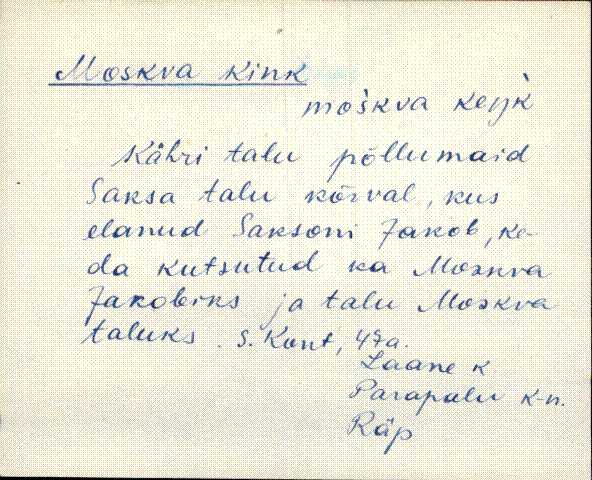 Moskva kink
moškva keŋk
Kähri talu põllumaid
Saksa talu kõrval, kus
elanud Saksoni Jakob, ke-
da kutsutud ka Moskva
Jakobiks ja talu Moskva
taluks. S. Kont, 47a.
Laane k
Parapalu k-n.
Räp